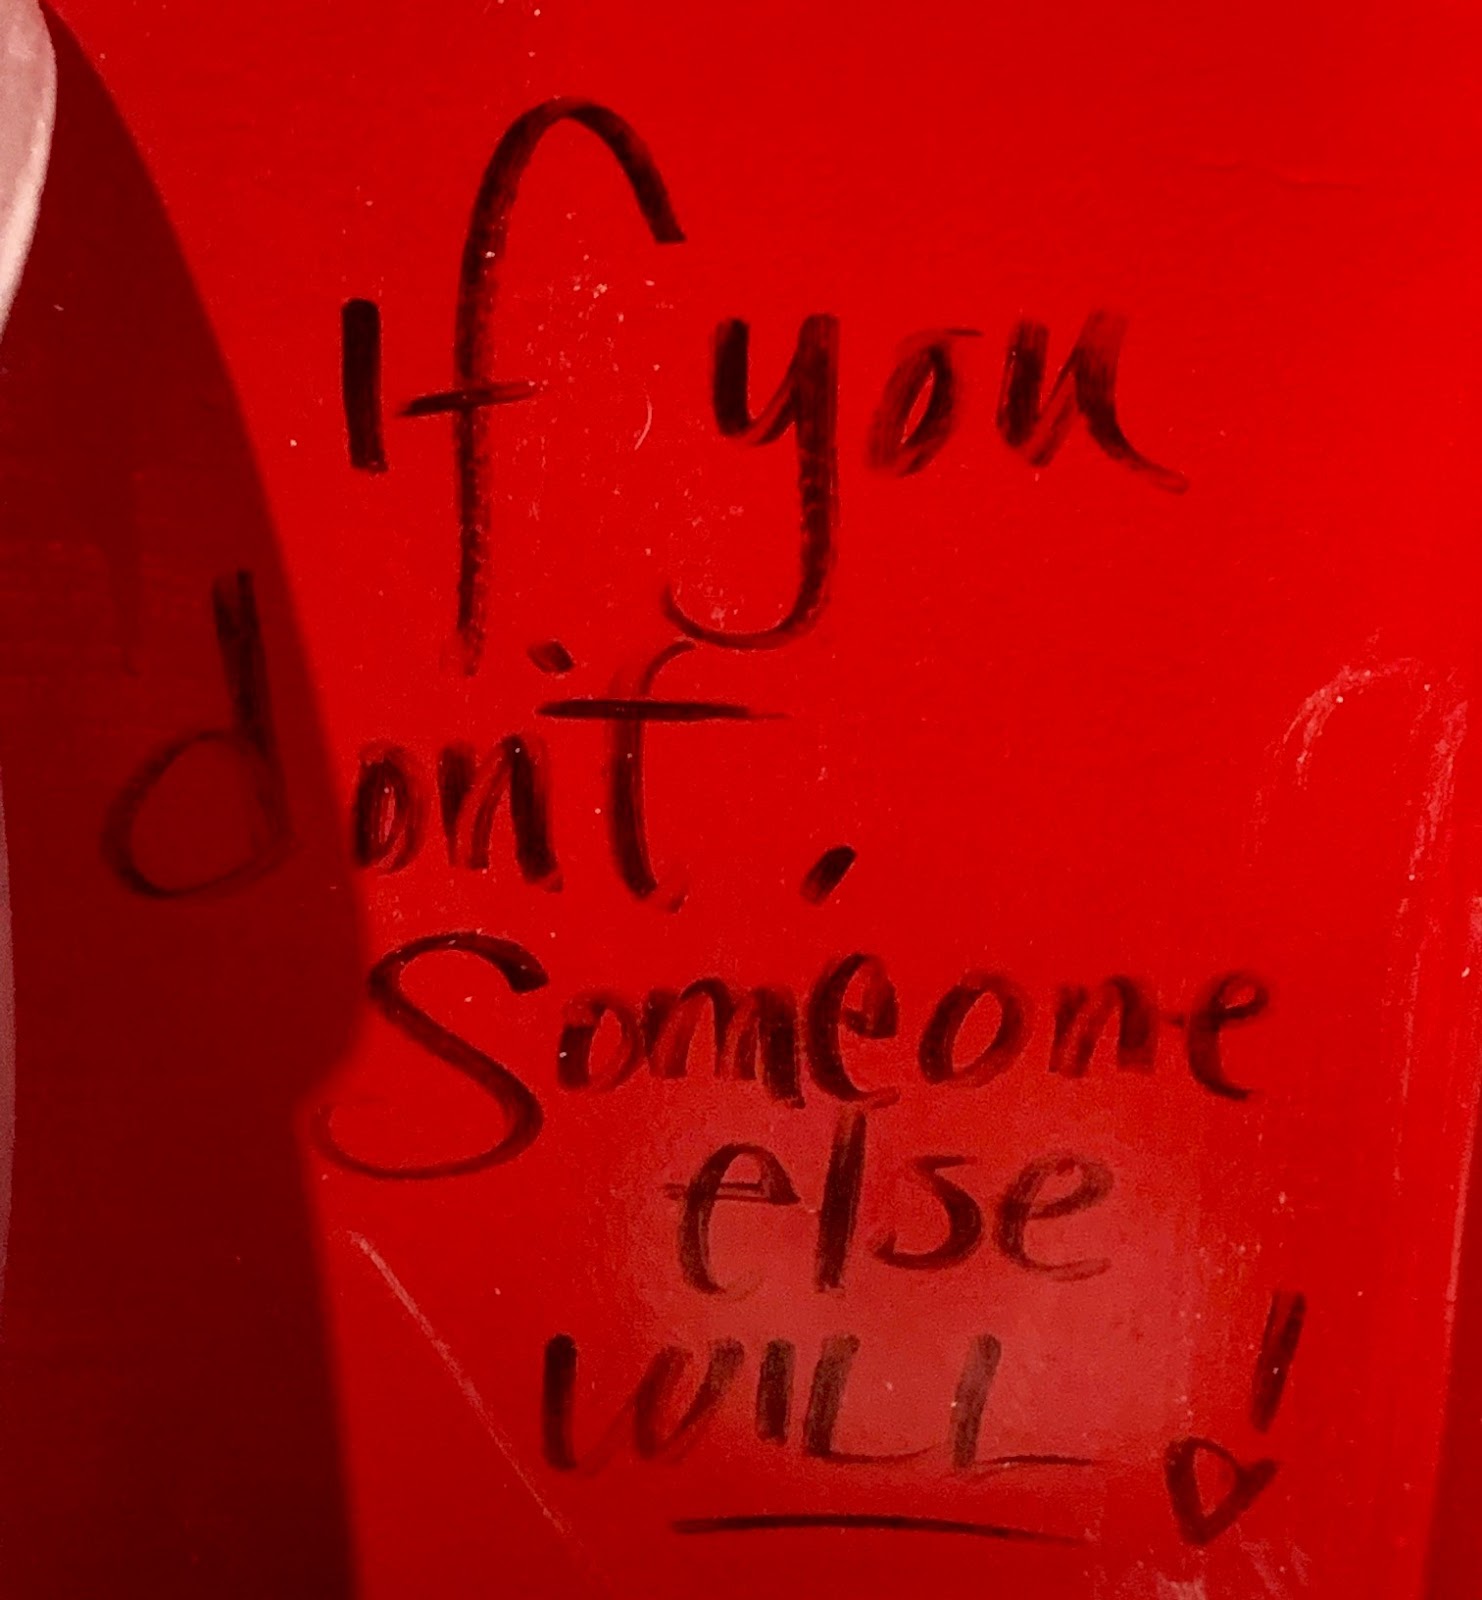 If you
don't,
Someone
else
WILL!